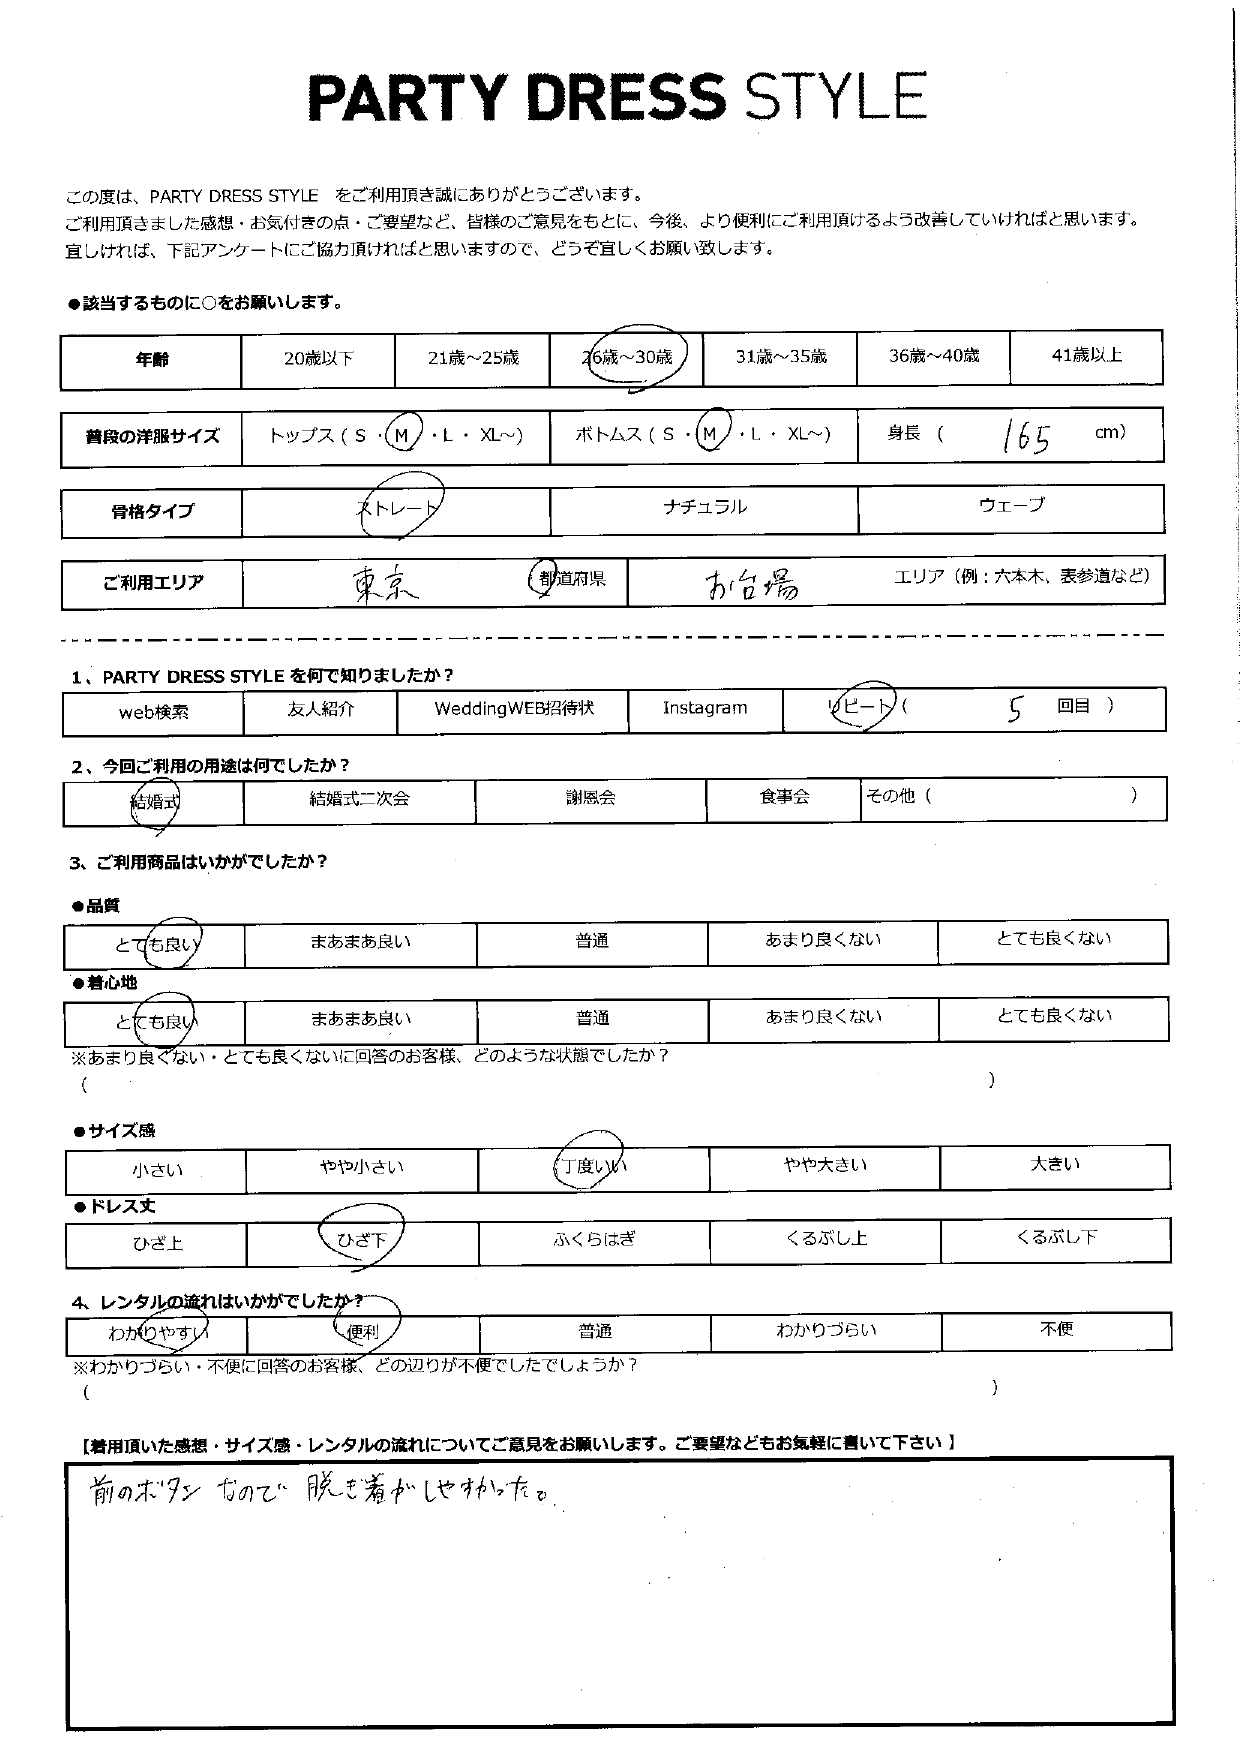 PARTY DRESS STYLE
この度は、PARTY DRESS STYLE をご利用頂き誠にありがとうございます。
ご利用頂きました感想・お気付きの点・ご要望など、皆様のご意見をもとに、今後、より便利にご利用頂けるよう改善していければと思います。
宜しければ、下記アンケートにご協力頂ければと思いますので、どうぞ宜しくお願い致します。
●該当するものに〇をお願いします。
年齢 20歳以下 21歳～25歳 26歳～30歳 31歳～35歳 36歳～40歳 41歳以上
普段の洋服サイズ トップス（ S ・ M ・ L ・ XL～) ボトムス（ S ・ M ・ L ・ XL～) 身長 （ 165 cm）
骨格タイプ ストレート ナチュラル ウェーブ
ご利用エリア 東京 都道府県 お台場 エリア（例：六本木、表参道など）
1、PARTY DRESS STYLE を何で知りましたか？
web検索 友人紹介 WeddingWEB招待状 Instagram リピート（ 5 回目 ）
2、今回ご利用の用途は何でしたか？
結婚式 結婚式二次会 謝恩会 食事会 その他（ ）
3、ご利用商品はいかがでしたか？
●品質
とても良い まあまあ良い 普通 あまり良くない とても良くない
●着心地
とても良い まあまあ良い 普通 あまり良くない とても良くない
※あまり良くない・とても良くないに回答のお客様、どのような状態でしたか？
（ ）
●サイズ感
小さい やや小さい 丁度いい やや大きい 大きい
●ドレス丈
ひざ上 ひざ下 ふくらはぎ くるぶし上 くるぶし下
4、レンタルの流れはいかがでしたか？
わかりやすい 便利 普通 わかりづらい 不便
※わかりづらい・不便に回答のお客様、どの辺りが不便でしたでしょうか？
（ ）
【着用頂いた感想・サイズ感・レンタルの流れについてご意見をお願いします。ご要望などもお気軽に書いて下さい】
前のボタンなので 脱ぎ着がしやすかった。